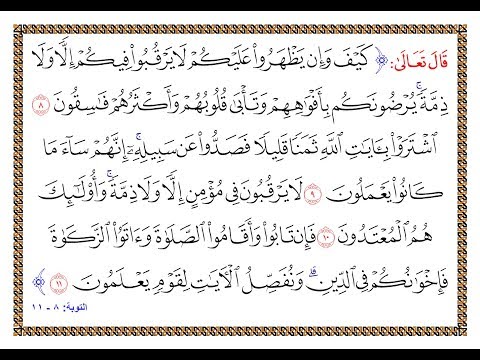 قَالَ تَعَالَىٰ: ﴿ كَيْفَ وَإِن يَظْهَرُوا۟ عَلَيْكُمْ لَا يَرْقُبُوا۟ فِيكُمْ إِلًّا وَلَا
ذِمَّةً ۚ يُرْضُونَكُم بِأَفْوَٰهِهِمْ وَتَأْبَىٰ قُلُوبُهُمْ وَأَكْثَرُهُمْ فَـٰسِقُونَ ٨
ٱشْتَرَوْا۟ بِـَٔايَـٰتِ ٱللَّهِ ثَمَنًا قَلِيلًا فَصَدُّوا۟ عَن سَبِيلِهِۦٓ ۚ إِنَّهُمْ سَآءَ مَا
كَانُوا۟ يَعْمَلُونَ ٩ لَا يَرْقُبُونَ فِى مُؤْمِنٍ إِلًّا وَلَا ذِمَّةً ۚ وَأُو۟لَـٰٓئِكَ
هُمُ ٱلْمُعْتَدُونَ ١٠ فَإِن تَابُوا۟ وَأَقَامُوا۟ ٱلصَّلَوٰةَ وَءَاتَوُا۟ ٱلزَّكَوٰةَ
فَإِخْوَٰنُكُمْ فِى ٱلدِّينِ ۗ وَنُفَصِّلُ ٱلْـَٔايَـٰتِ لِقَوْمٍ يَعْلَمُونَ ١١ ﴾
التوبة: ٨ - ١١